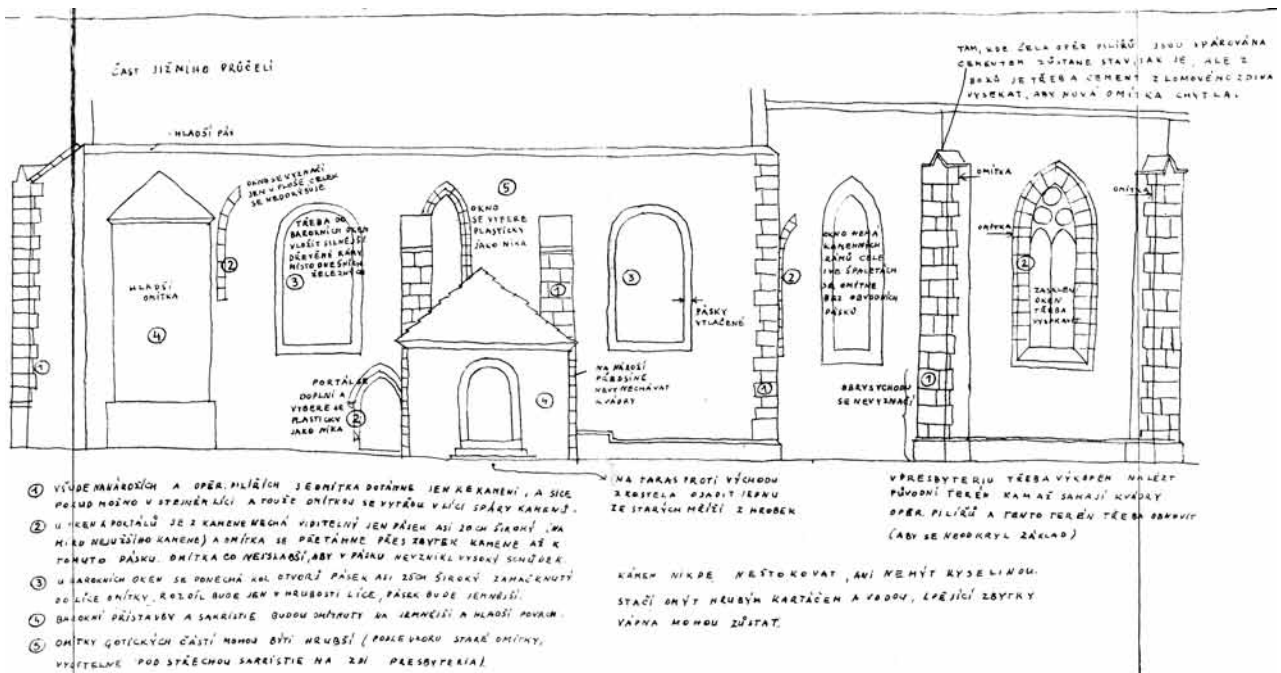 ČÁST JIŽNÍHO PRŮČELÍ
HLADŠÍ PÁS
TAM, KDE ČELA OPĚR. PILÍŘŮ JSOU SPÁROVÁNA
CEMENTEM ZŮSTANE STAV, JAK JE, ALE Z
BOKŮ JE TŘEBA CEMENT Z LOMOVÉHO ZDIVA
VYSEKAT, ABY NOVÁ OMÍTKA CHYTLA.
OKNO SE VYZNAČÍ
JEN V PLOŠE CELEK
SE NEDOKRYJE
TŘEBA DO
BAROKNÍCH OKEN
VLOŽIT SILNĚJŠÍ
DŘEVĚNÉ RÁMY
MÍSTO DNEŠNÍCH
ŽELEZNÝCH
5
OKNO
SE VYBERE
PLASTICKY
JAKO NIKA
OKNO NEMÁ
KAMENNÝCH
RÁMŮ CELÉ
I VE ŠPALETÁCH
SE OMÍTNE
BEZ OBVODNÍCH
PÁSKŮ
OMÍTKA
OMÍTKA
OMÍTKA
2
3
1
3
2
2
HLADŠÍ
OMÍTKA
4
PÁSKY
VTLAČENÉ
ZASKLENÍ
OKEN
TŘEBA
VYSPRAVIT
1
PORTÁL SE
DOPLNÍ A
VYBERE SE
PLASTICKY
JAKO NIKA
2
4
NA NÁROŽÍ
PŘEDSÍNĚ
NEVYNECHÁVAT
KVÁDRY
1
OBRYS VCHODU
SE NEVYZNAČÍ
1
1 VŠUDE NA NÁROŽÍCH A OPĚR. PILÍŘÍCH SE OMÍTKA DOTÁHNE JEN KE KAMENI, A SICE
POKUD MOŽNO V STEJNÉM LÍCI A TOUŽE OMÍTKOU SE VYTŘOU V LÍCI SPÁRY KAMENŮ.
2 U OKEN A PORTÁLŮ SE Z KAMENE NECHÁ VIDITELNÝ JEN PÁSEK ASI 20CM ŠIROKÝ (NA
MÍRU NEJUŽŠÍHO KAMENE) A OMÍTKA SE PŘETÁHNE PŘES ZBYTEK KAMENE AŽ K
TOMUTO PÁSKU. OMÍTKA CO NEJSLABŠÍ, ABY V PÁSKU NEVZNIKL VYSOKÝ SCHŮDEK.
3 U BAROKNÍCH OKEN SE PONECHÁ KOL OTVORŮ PÁSEK ASI 25CM ŠIROKÝ ZAMÁČKNUTÝ
DO LÍCE OMÍTKY. ROZDÍL BUDE JEN V HRUBOSTI LÍCE, PÁSEK BUDE JEMNĚJŠÍ.
4 BAROKNÍ PŘÍSTAVBY A SAKRISTIE BUDOU OMÍTNUTY NA JEMNĚJŠÍ A HLADŠÍ POVRCH.
5 OMÍTKY GOTICKÝCH ČÁSTÍ MOHOU BÝTI HRUBŠÍ (PODLE VZORU STARÉ OMÍTKY,
VIDITELNÉ POD STŘECHOU SAKRISTIE NA ZDI PRESBYTERIA).
NA TARAS PROTI VÝCHODU
Z KOSTELA OSADIT JEDNU
ZE STARÝCH MŘÍŽÍ Z HROBEK
V PRESBYTERIU TŘEBA VÝKOPEM NALÉZT
PŮVODNÍ TERÉN KAM AŽ SAHAJÍ KVÁDRY
OPĚR. PILÍŘŮ A TENTO TERÉN TŘEBA OBNOVIT
(ABY SE NEODKRYL ZÁKLAD)
KÁMEN NIKDE NEŠTOKOVAT, ANI NEMÝT KYSELINOU.
STAČÍ OMÝT HRUBÝM KARTÁČEM A VODOU, LPĚJÍCÍ ZBYTKY
VÁPNA MOHOU ZŮSTAT.